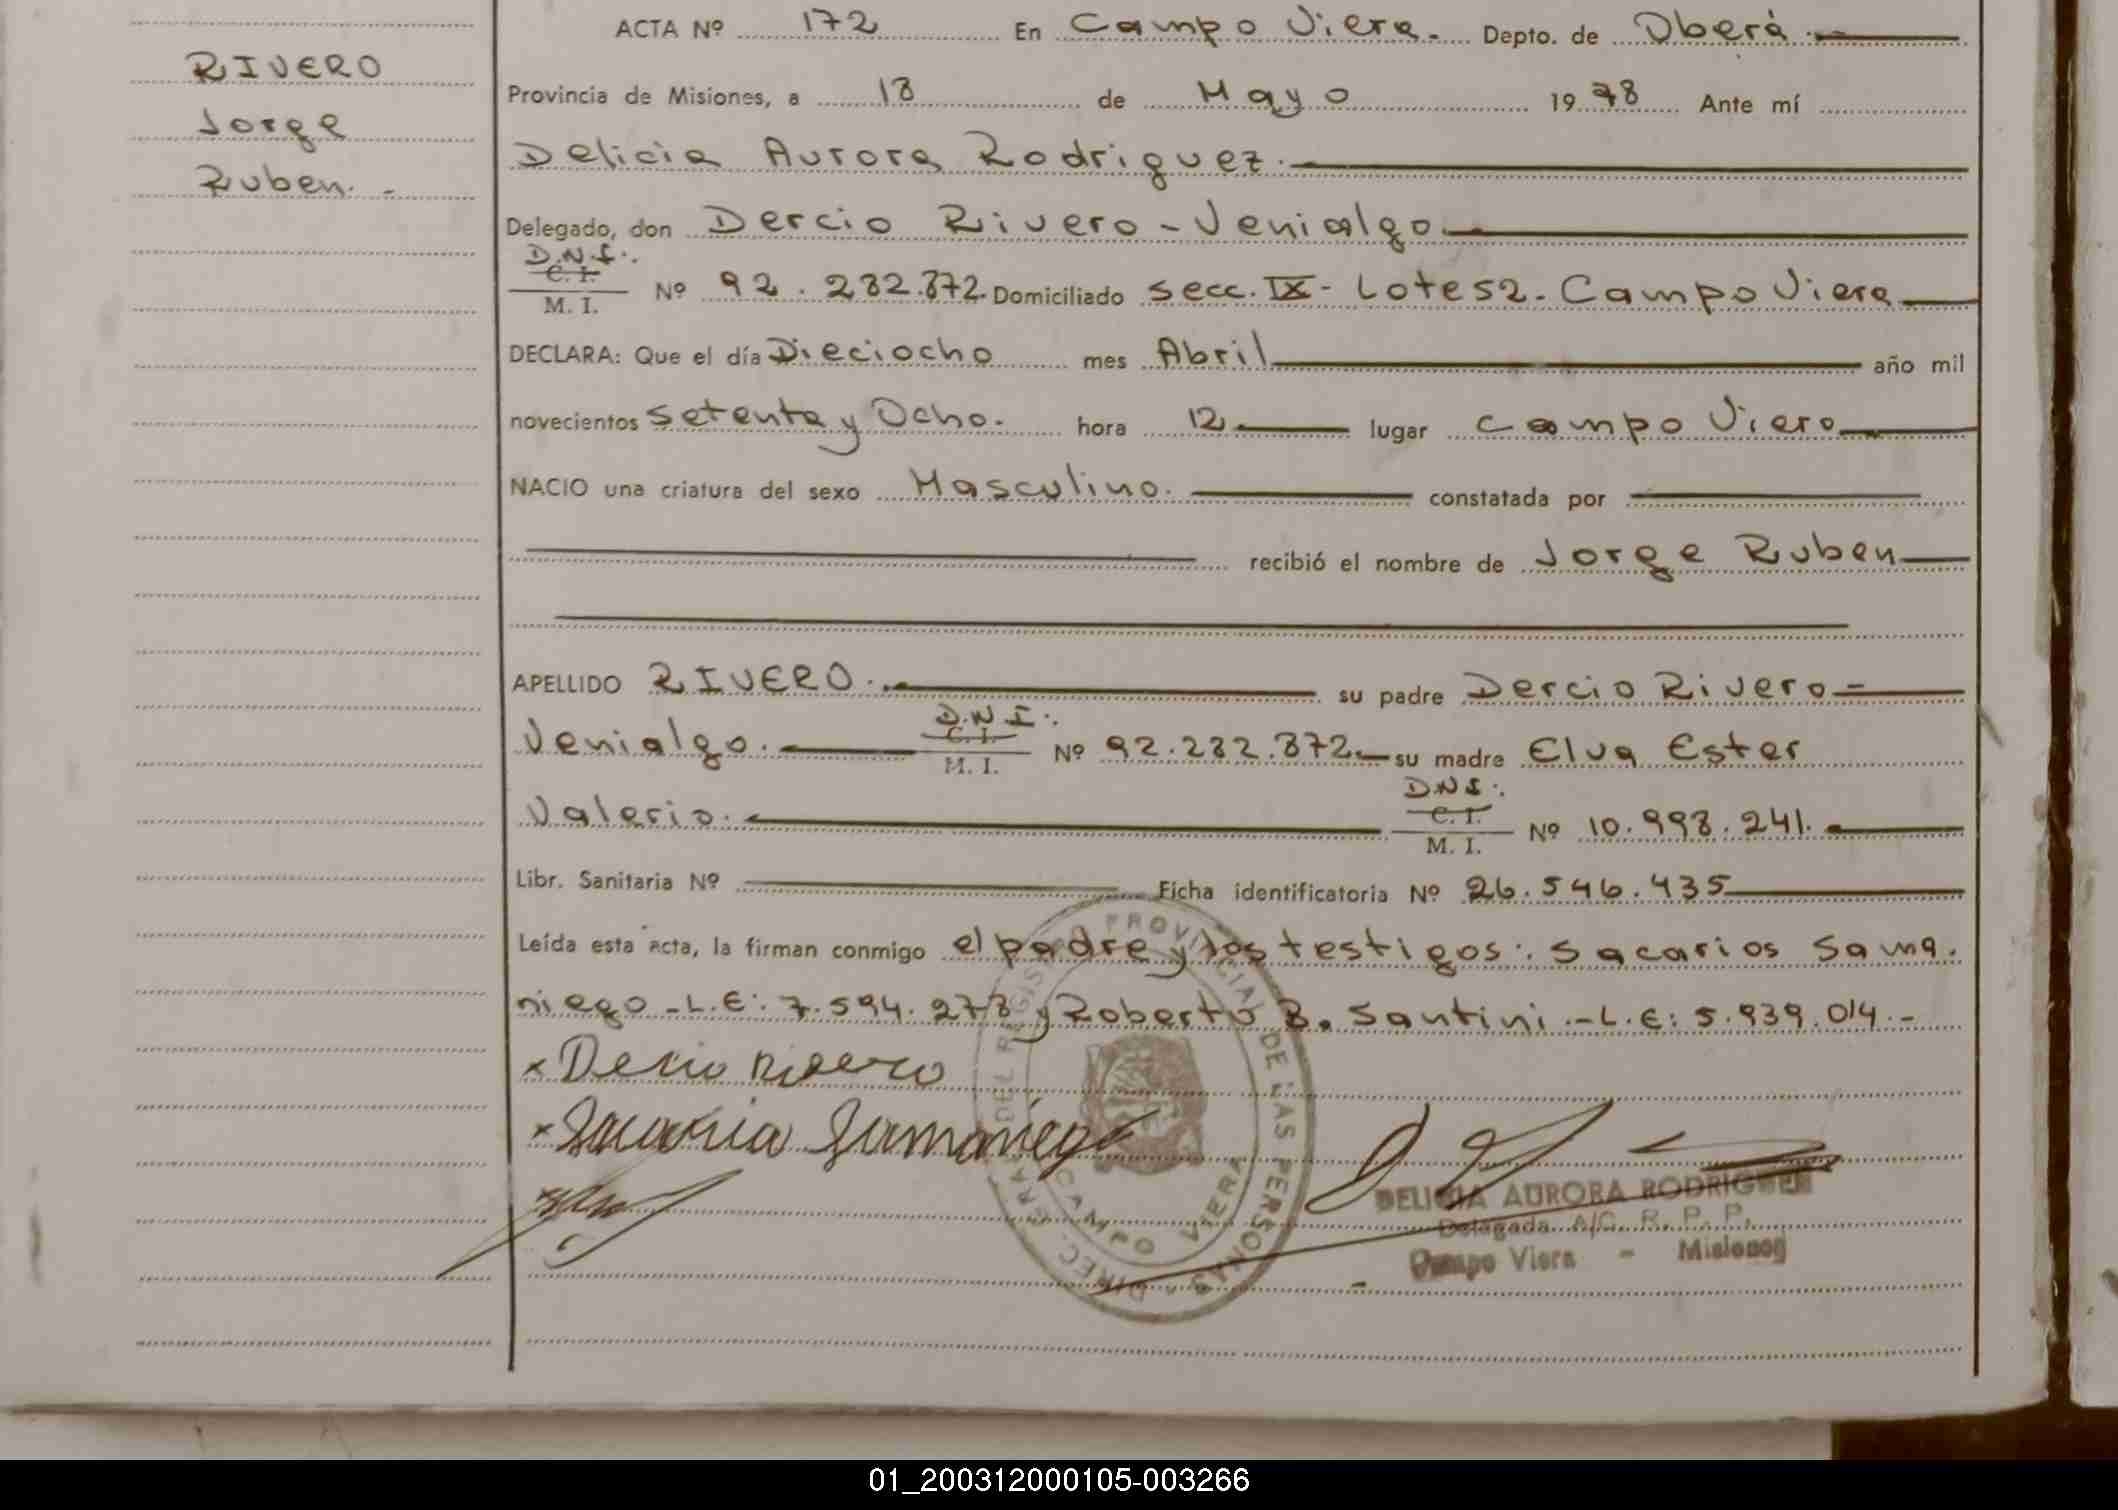 RIVERO
Jorge
Ruben.-
ACTA Nº 172 En Campo Viera. Depto. de Oberá.
Provincia de Misiones, a 18 de Mayo 1978 Ante mí
Delicia Aurora Rodriguez.
Delegado, don Dercio Rivero-Venialgo.
D.N.I.
C. I.
M. I. Nº 92.232.872. Domiciliado secc. IX- Lote 52. Campo Viera
DECLARA: Que el día Dieciocho mes Abril año mil
novecientos setenta y Ocho. hora 12. lugar Campo Viera
NACIO una criatura del sexo Masculino. constatada por
recibió el nombre de Jorge Ruben
APELLIDO RIVERO. su padre Dercio Rivero-
D.N.I.
C. I.
Venialgo. M. I. Nº 92.232.872. su madre Elva Ester
D.N.I.
C. I.
Valerio. M. I. Nº 10.998.241.
Libr. Sanitaria Nº Ficha identificatoria Nº 26.546.435
Leída esta acta, la firman conmigo el padre y los testigos: Sacarios Sama.
niego-L.E: 7.594.278 y Roberto B. Santini.-L.E: 5.939.014.-
x Dercio Rivero
x Sacaria Samaniego
DIREC. GRAL. DEL REGISTRO PROVINCIAL DE LAS PERSONAS
CAMPO VIERA
DELICIA AURORA RODRIGUEZ
Delegada A/C. R. P. P.
Campo Viera - Misiones
01_200312000105-003266